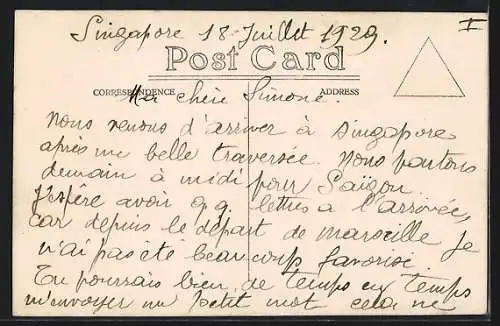 Singapore 18 Juillet 1929.
I
Post Card
CORRESPONDENCE
ADDRESS
Ma chère Simone.
Nous venons d'arriver à Singapore
après une belle traversée. Nous partons
demain à midi pour Saïgon.
J'espère avoir q.q. lettres à l'arrivée,
car depuis le départ de Marseille je
n'ai pas été beaucoup favorisé.
Tu pourrais bien, de temps en temps
m'envoyer un petit mot cela ne